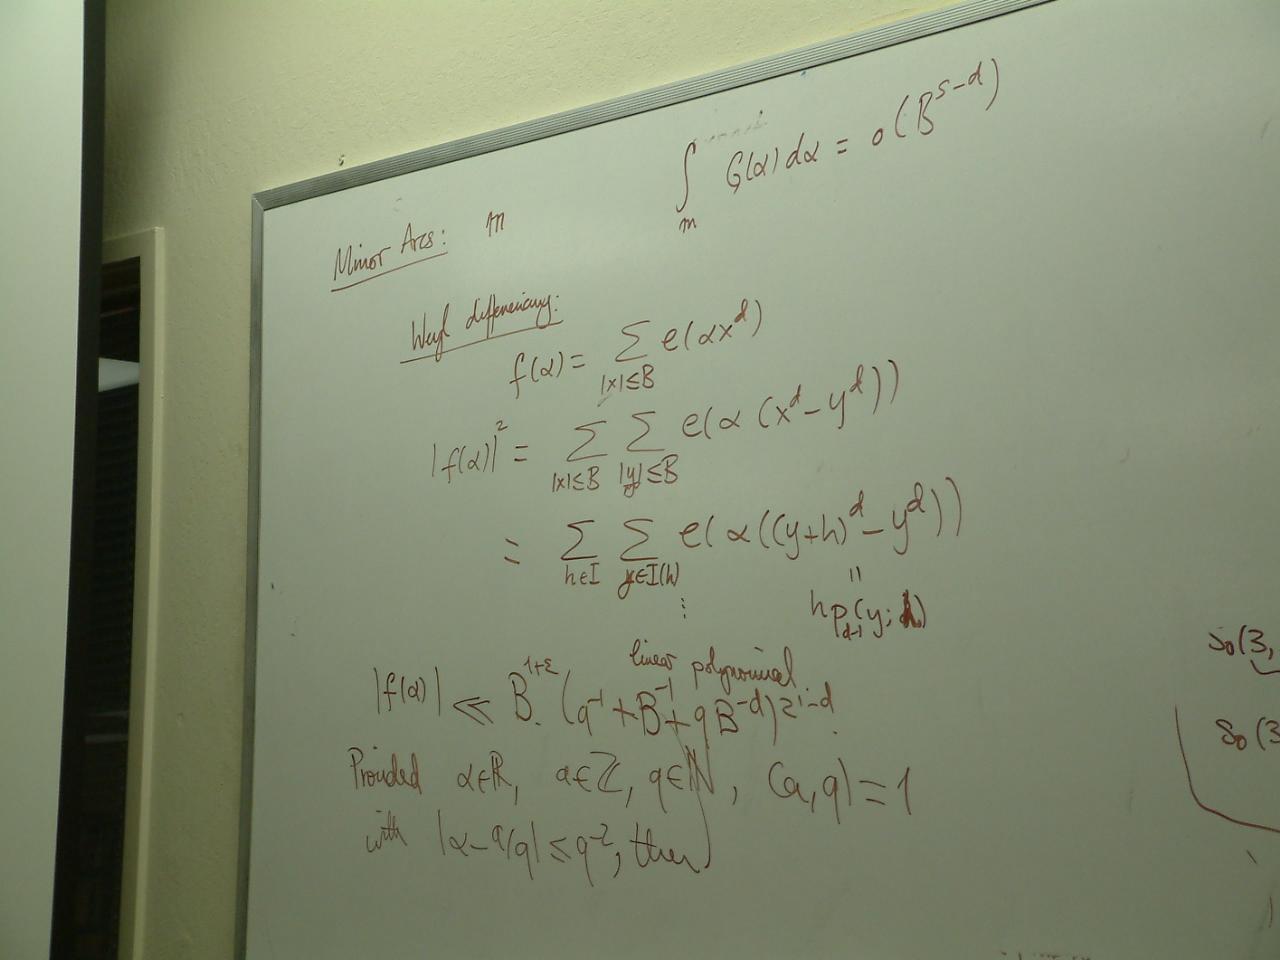 ∫_m G(α)dα = o(B^{s-d})
Minor Arcs: m
Weyl differencing:
f(α) = Σ_{|x|≤B} e(αx^d)
|f(α)|^2 = Σ_{|x|≤B} Σ_{|y|≤B} e(α(x^d - y^d))
= Σ_{h∈I} Σ_{y∈I(h)} e(α((y+h)^d - y^d))
⋮ =
h p_{d-1}(y; h)
linear polynomial
|f(α)| ≪ B^{1+ε} (q^{-1} + B^{-1} + qB^{-d})^{2^{1-d}}
Provided α∈ℝ, a∈ℤ, q∈ℕ, (a,q)=1
with |α - a/q| ≤ q^{-2}, then
So(3,
So(3